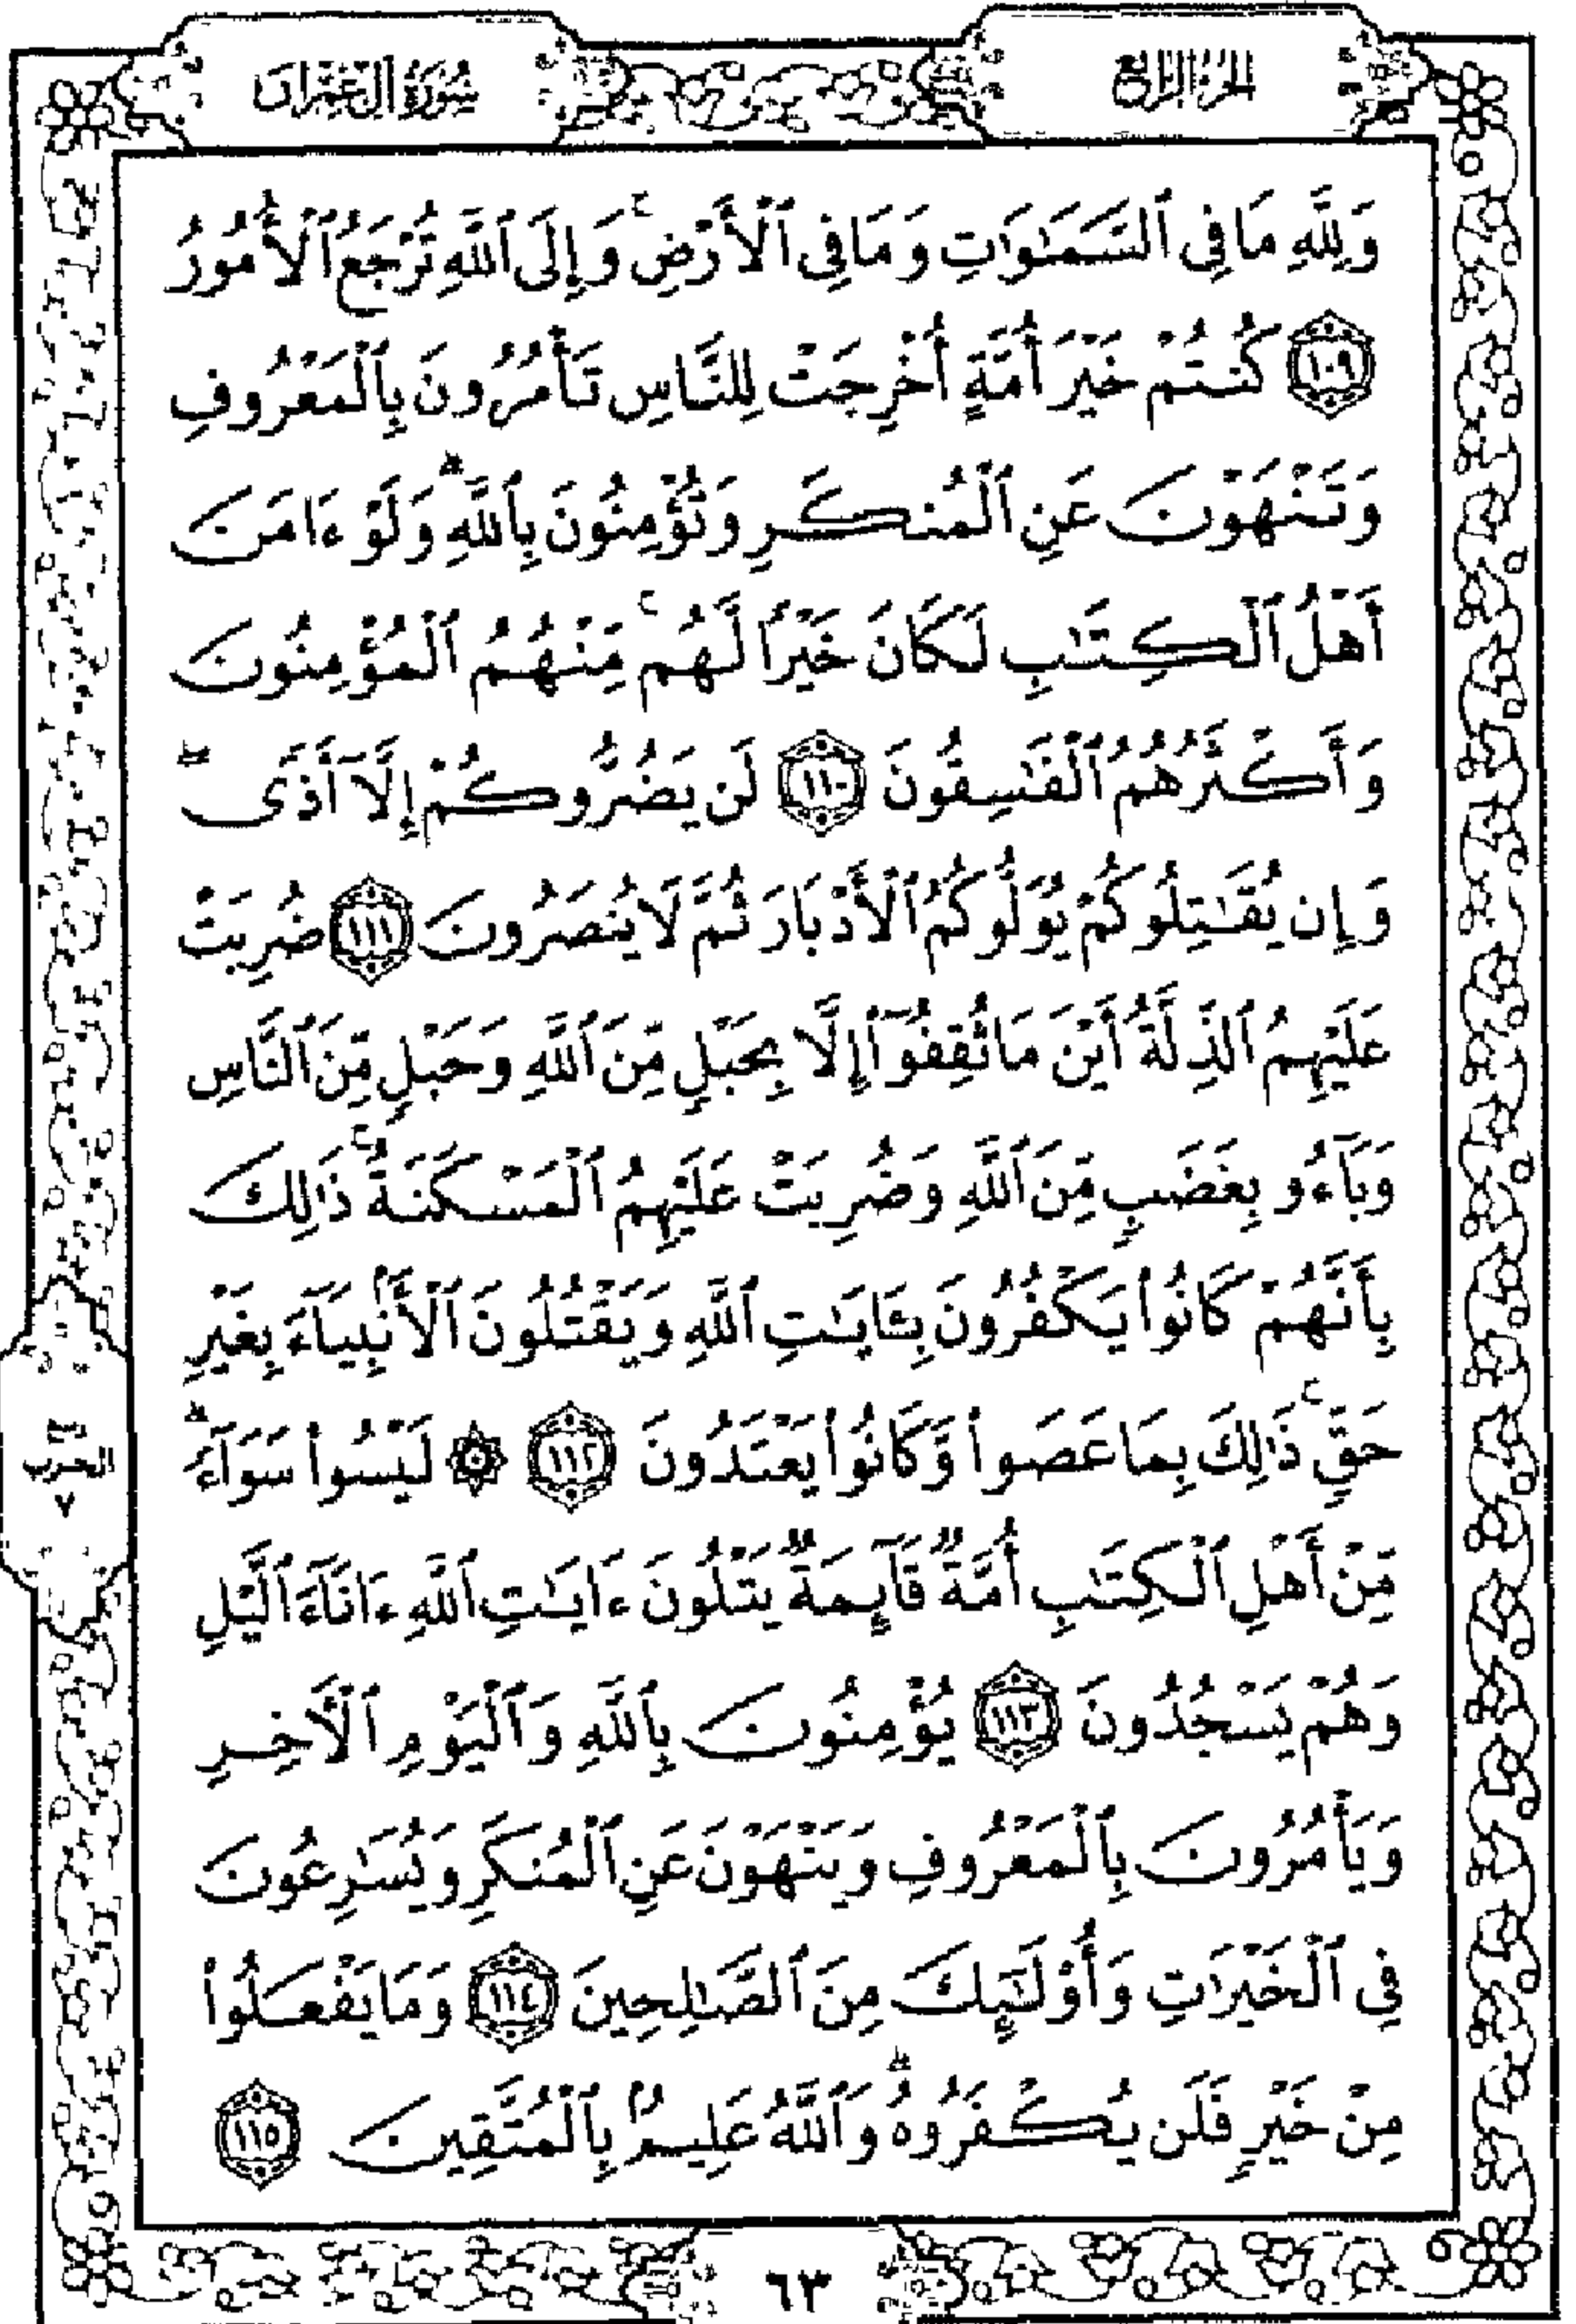 الجزء الرابع
سورة آل عمران
وَلِلَّهِ مَا فِى ٱلسَّمَٰوَٰتِ وَمَا فِى ٱلْأَرْضِ ۚ وَإِلَى ٱللَّهِ تُرْجَعُ ٱلْأُمُورُ
١٠٩ كُنتُمْ خَيْرَ أُمَّةٍ أُخْرِجَتْ لِلنَّاسِ تَأْمُرُونَ بِٱلْمَعْرُوفِ
وَتَنْهَوْنَ عَنِ ٱلْمُنكَرِ وَتُؤْمِنُونَ بِٱللَّهِ ۗ وَلَوْ ءَامَنَ
أَهْلُ ٱلْكِتَٰبِ لَكَانَ خَيْرًا لَّهُم ۚ مِّنْهُمُ ٱلْمُؤْمِنُونَ
وَأَكْثَرُهُمُ ٱلْفَٰسِقُونَ ١١٠ لَن يَضُرُّوكُمْ إِلَّآ أَذًى ۖ
وَإِن يُقَٰتِلُوكُمْ يُوَلُّوكُمُ ٱلْأَدْبَارَ ثُمَّ لَا يُنصَرُونَ ١١١ ضُرِبَتْ
عَلَيْهِمُ ٱلذِّلَّةُ أَيْنَ مَا ثُقِفُوٓا۟ إِلَّا بِحَبْلٍ مِّنَ ٱللَّهِ وَحَبْلٍ مِّنَ ٱلنَّاسِ
وَبَآءُو بِغَضَبٍ مِّنَ ٱللَّهِ وَضُرِبَتْ عَلَيْهِمُ ٱلْمَسْكَنَةُ ۚ ذَٰلِكَ
بِأَنَّهُمْ كَانُوا۟ يَكْفُرُونَ بِـَٔايَٰتِ ٱللَّهِ وَيَقْتُلُونَ ٱلْأَنۢبِيَآءَ بِغَيْرِ
حَقٍّ ۚ ذَٰلِكَ بِمَا عَصَوا۟ وَّكَانُوا۟ يَعْتَدُونَ ١١٢ ۞ لَيْسُوا۟ سَوَآءً ۗ
مِّنْ أَهْلِ ٱلْكِتَٰبِ أُمَّةٌ قَآئِمَةٌ يَتْلُونَ ءَايَٰتِ ٱللَّهِ ءَانَآءَ ٱلَّيْلِ
وَهُمْ يَسْجُدُونَ ١١٣ يُؤْمِنُونَ بِٱللَّهِ وَٱلْيَوْمِ ٱلْـَٔاخِرِ
وَيَأْمُرُونَ بِٱلْمَعْرُوفِ وَيَنْهَوْنَ عَنِ ٱلْمُنكَرِ وَيُسَٰرِعُونَ
فِى ٱلْخَيْرَٰتِ وَأُو۟لَٰٓئِكَ مِنَ ٱلصَّٰلِحِينَ ١١٤ وَمَا يَفْعَلُوا۟
مِنْ خَيْرٍ فَلَن يُكْفَرُوهُ ۗ وَٱللَّهُ عَلِيمٌۢ بِٱلْمُتَّقِينَ ١١٥
الحزب
٧
٦٣